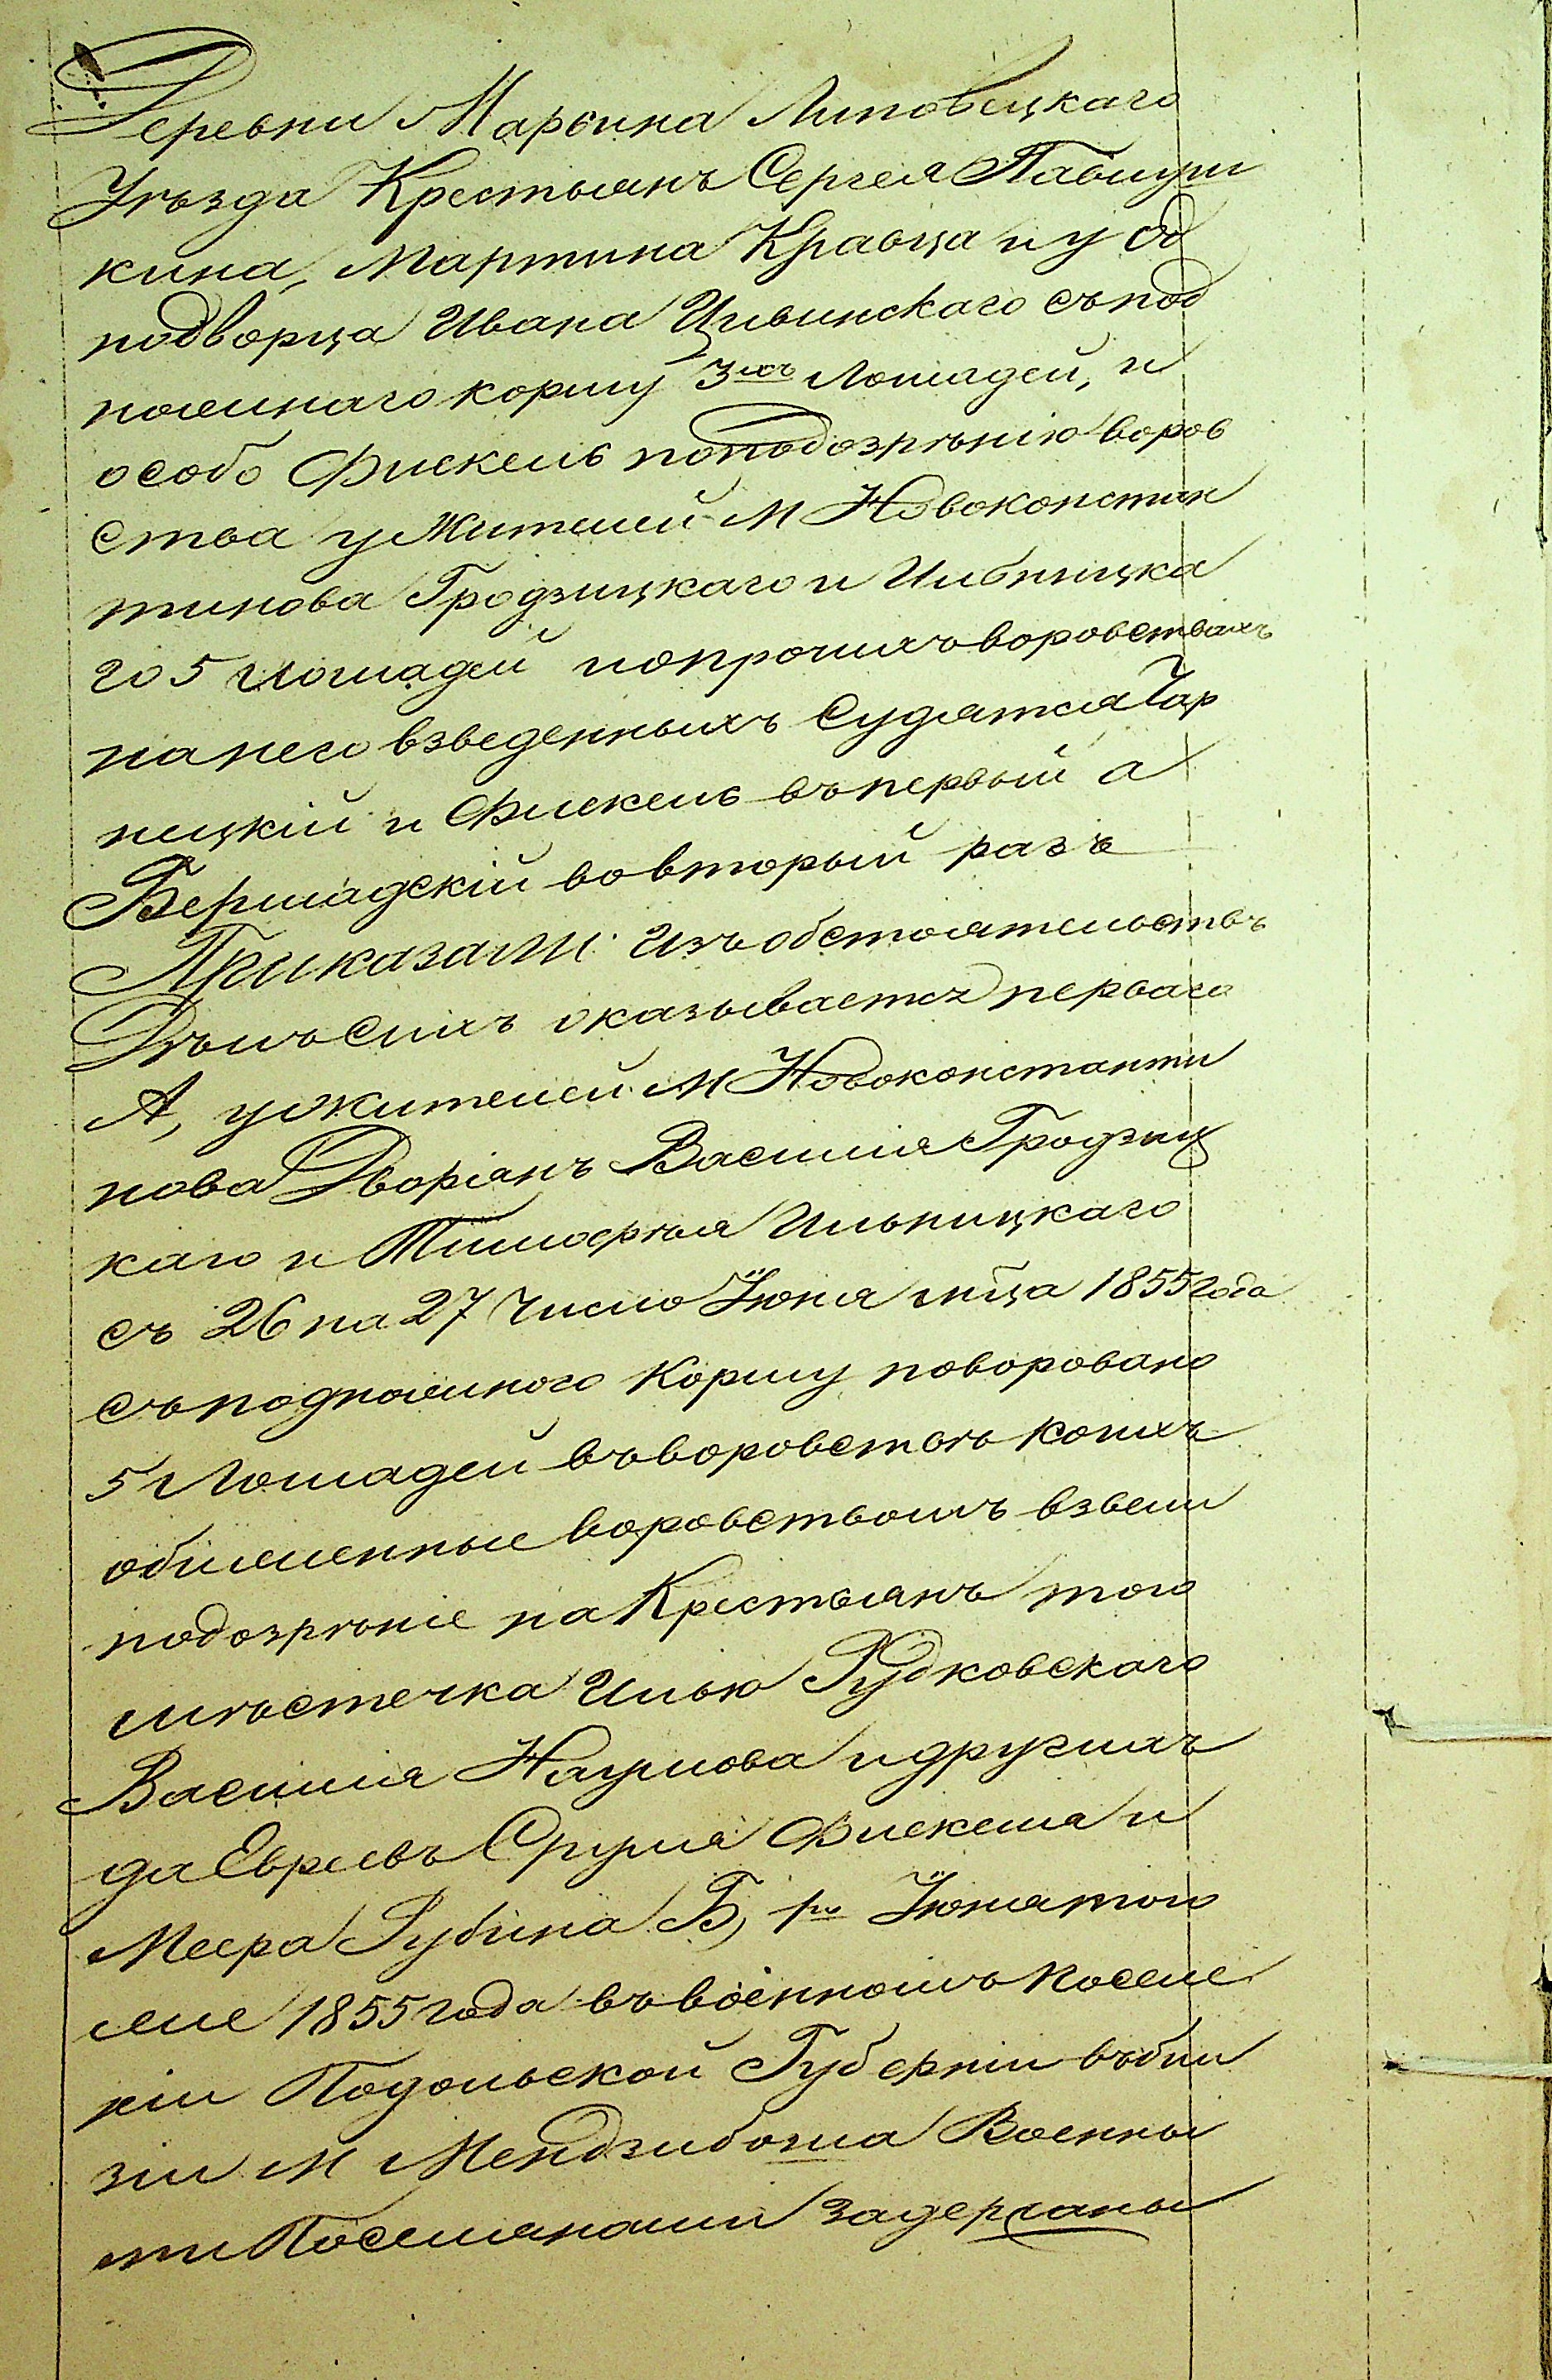 Деревни Марьина Липовецкаго
Уѣзда Крестьянъ Сергея Павлуш
кина, Мартина Кравца и у Од
нодворца Ивана Цивинскаго съ под
ножнаго корму 3хъ Лошадей, и
особо Фискель по подозрѣнію воров
ства у Жителей М Новоконстан
тинова Гродзицкаго и Ильницка
го 5 лошадей и о прочихъ воровствахъ
на него взведенныхъ Судятся Чар
ницкій и Фискель въ первый а
Бершадскій во вторый разъ
Приказали: Изъ обстоятельствъ
Дѣлъ Сихъ оказывается перваго
А, у жителей М Новоконстанти
нова Дворянъ Василія Гродзиц
каго и Тимофѣя Ильницкаго
съ 26 на 27 Число Іюня мѣца 1855 года
съ подножного Корму поворовано
5 Лошадей въ воровствѣ коихъ
объявленные воровствомъ взвели
подозрѣніе на Крестьянъ того
мѣстечка Илью Рудковскаго
Василія Наумова и другихъ
да Евреевъ Сруля Фискеля и
Меера Рубина Б, 1го Іюня того
же 1855 года въ военномъ поселе
ніи Подольской Губерніи въ бли
зи М Мендзибожа Военны
ми Поселянами задержаны